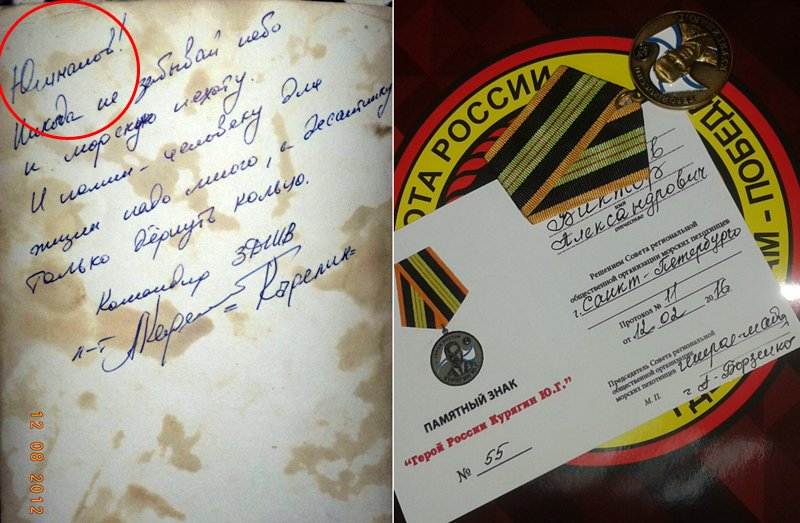 Никогда не забывай небо
и морскую пехоту.
И помни - человеку для
жизни надо много, а десантнику
только дёрнуть кольцо.
Командир ЗДШВ
л-т
12 08 2012
ОТА РОССИИ
Виктор
имя
Александрович
отчество
Решением Совета региональной
общественной организации морских пехотинцев
г. Санкт-Петербурга
Протокол № 11
от 12 02 2016
Председатель Совета региональной
общественной организации
морских пехотинцев
М. П.
ПАМЯТНЫЙ ЗНАК
"Герой России Курягин Ю.Г."
№ 55